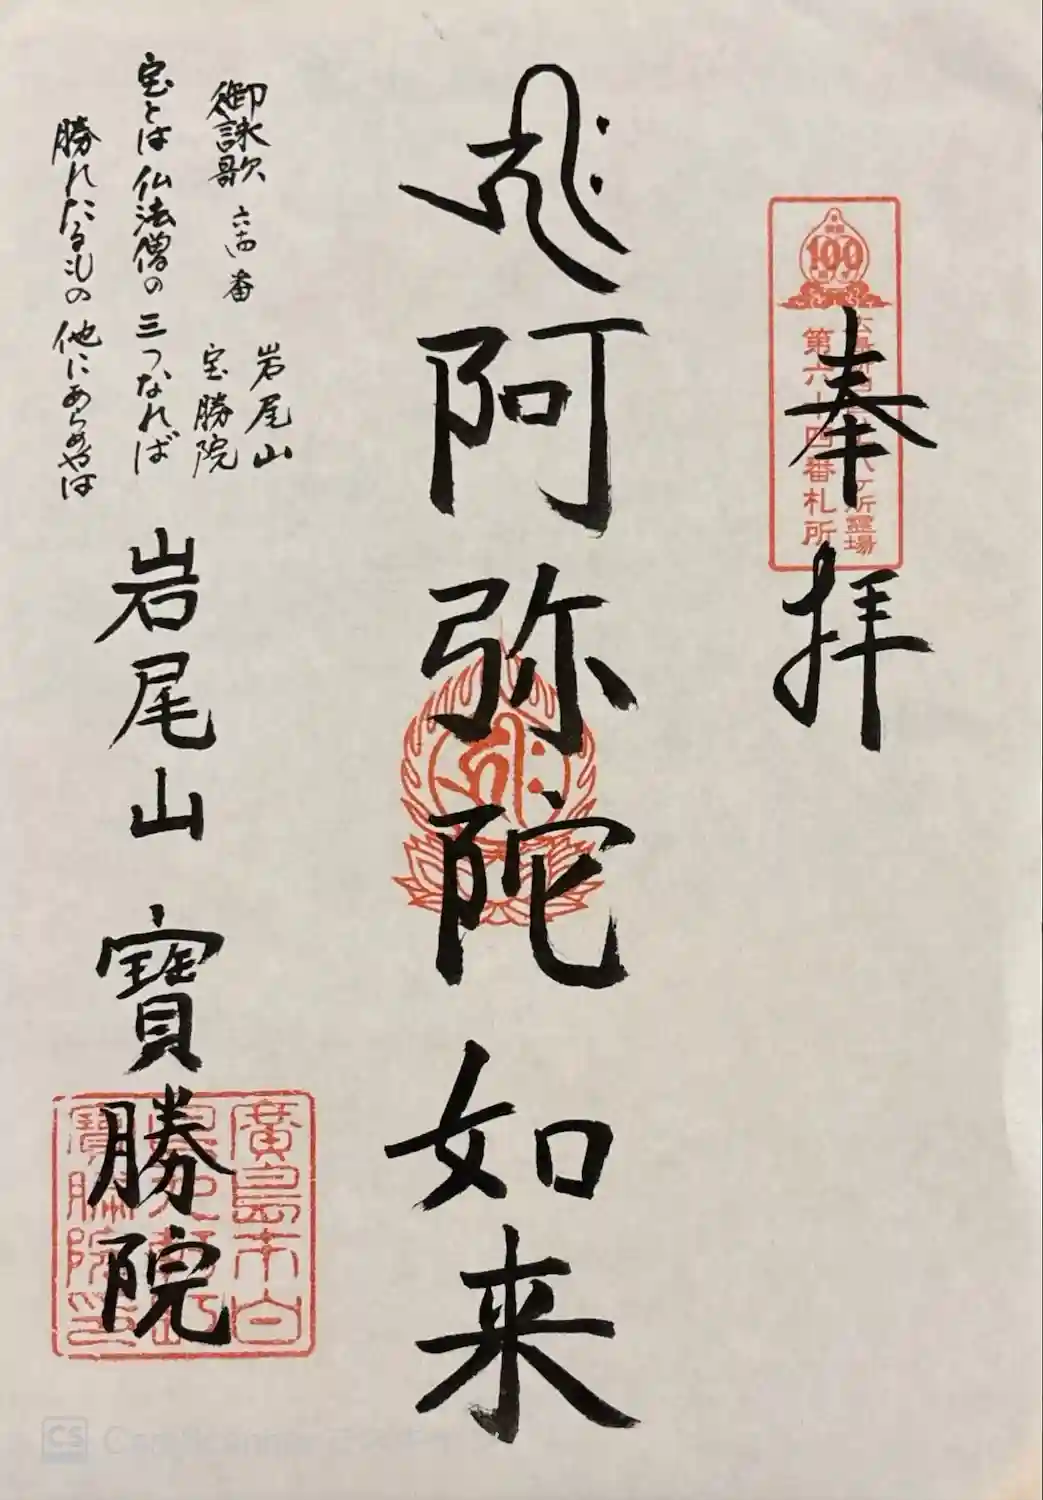 奉拝
100
第六十四番札所
𑖮𑖿𑖨𑖱𑖾
阿弥陀如来
御詠歌 六四番
岩尾山
宝勝院
宝とは仏法僧の三つなれば
勝れたるもの他にあらめやは
岩尾山 寶勝院
廣島市白
寶勝院印
CS CamScanner